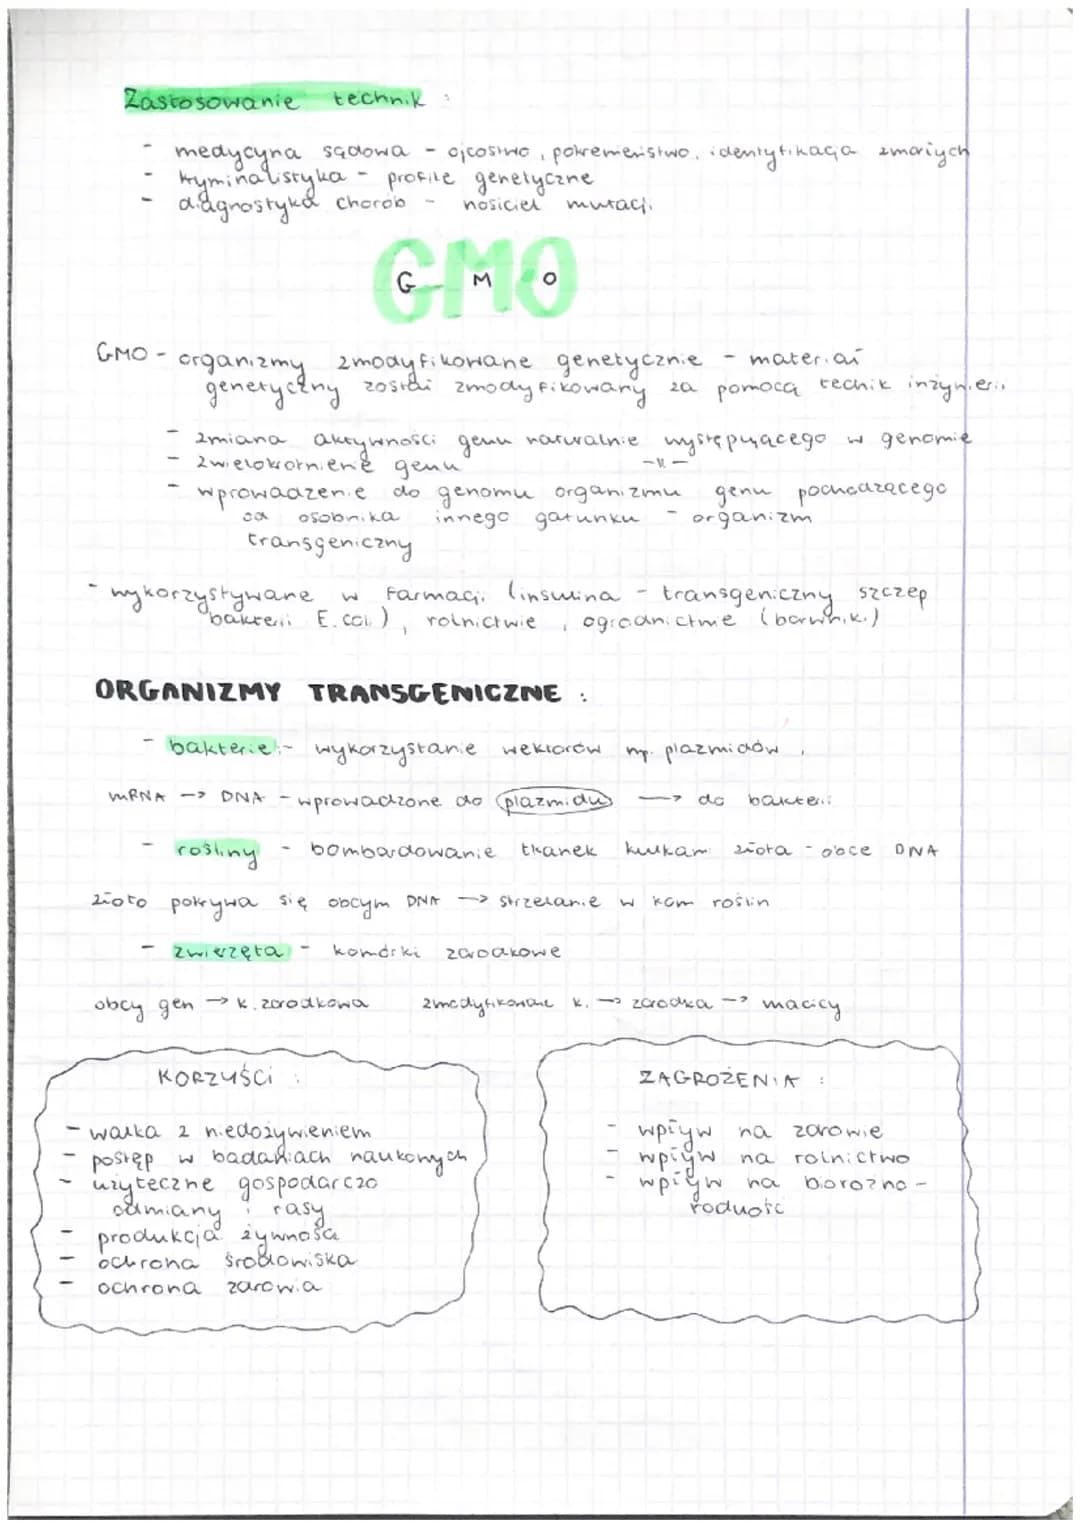 Zastosowanie technik :
- medycyna sądowa - ojcostwo, pokrewieństwo, identyfikacja zmarłych
- kryminalistyka - profile genetyczne
- diagnostyka chorób - nosiciel mutacji
GMO
G M O
GMO - organizmy zmodyfikowane genetycznie - materiał
genetyczny został zmodyfikowany za pomocą technik inżynierii
- zmiana aktywności genu naturalnie występującego w genomie
- zwielokrotnienie genu -ıı-
- wprowadzenie do genomu organizmu genu pochodzącego
od osobnika innego gatunku - organizm
transgeniczny
- wykorzystywane w farmacji (insulina - transgeniczny szczep
bakterii E.coli), rolnictwie, ogrodnictwie (barwniki)
ORGANIZMY TRANSGENICZNE :
- bakterie :- wykorzystanie wektorów np. plazmidów,
mRNA -> DNA - wprowadzone do plazmidu -> do bakterii
- rośliny - bombardowanie tkanek kulkami złota - obce DNA
złoto pokrywa się obcym DNA -> strzelanie w kom roślin
- zwierzęta - komórki zarodkowe
obcy gen -> k. zarodkowa zmodyfikowane k. -> zarodka -> macicy
KORZYŚCI :
- walka z niedożywieniem
- postęp w badaniach naukowych
- użyteczne gospodarczo
odmiany i rasy
- produkcja żywności
- ochrona środowiska
- ochrona zdrowia
ZAGROŻENIA :
- wpływ na zdrowie
- wpływ na rolnictwo
- wpływ na bioróżno-
rodność